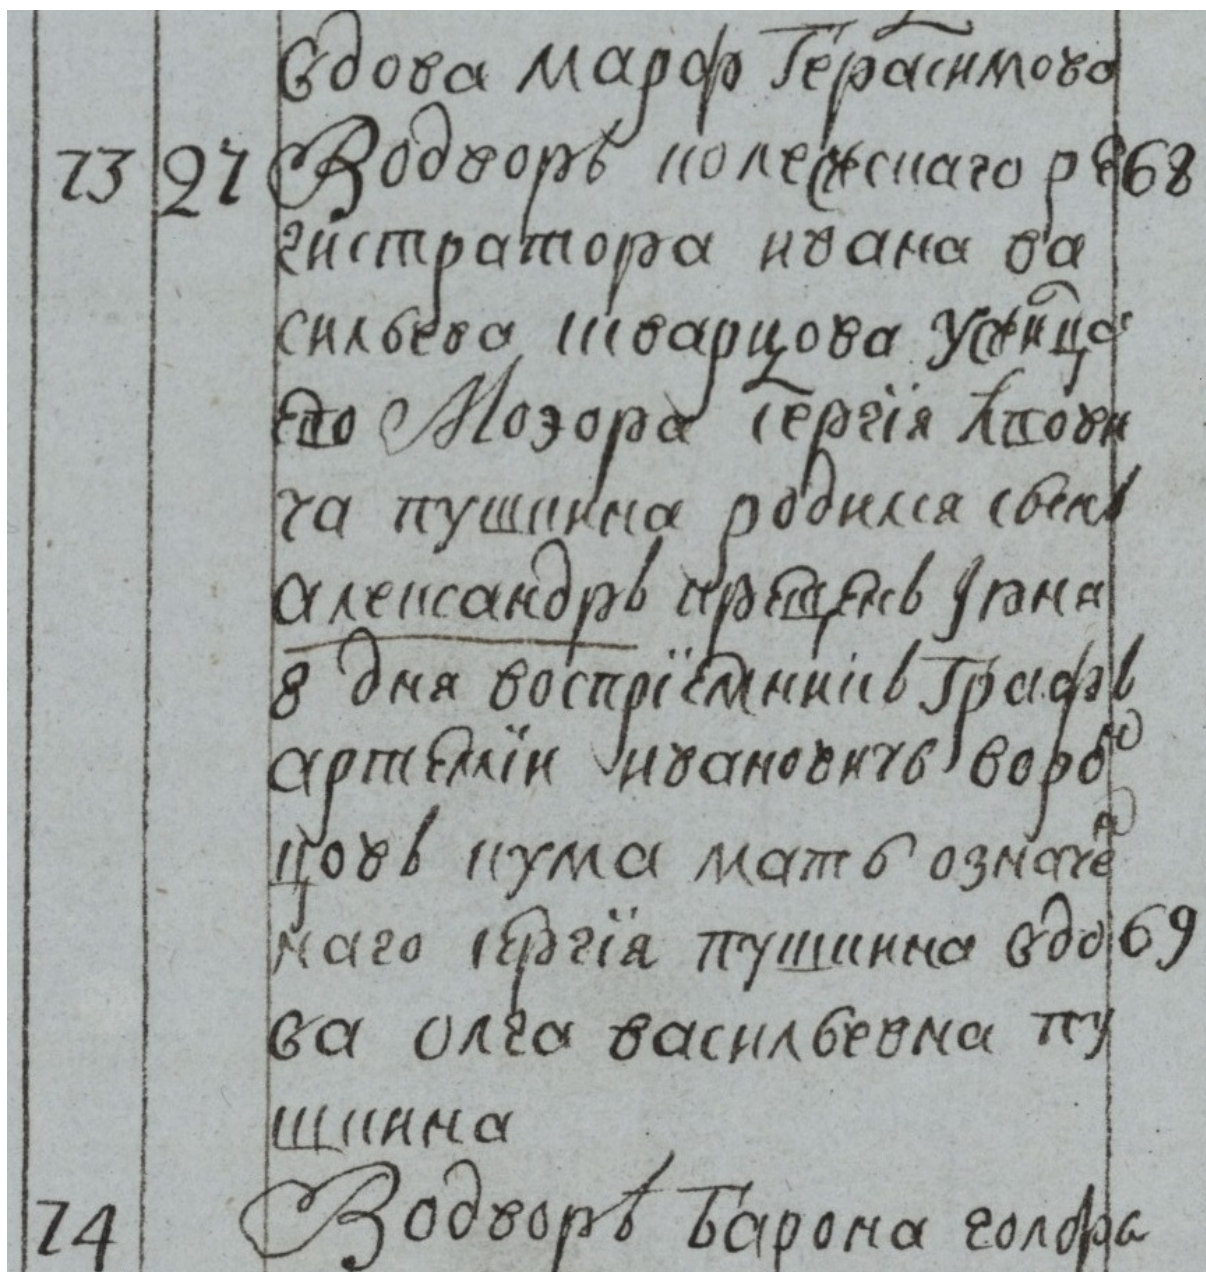 вдова марфа Герасимова
73 27 Водворѣ колежскаго ре 68
гистратора ивана ва
сильева шварцова у жильца
ево Моэора Сергiя лвови
ча пушкина родился сынъ
александръ крещенъ июня
8 дня воспрiемникъ Графъ
артемiи ивановичь ворон
цовъ кума мать означен
наго сергiя пушкина вдо 69
ва олга васильевна пу
шкина
74 Водворѣ барона